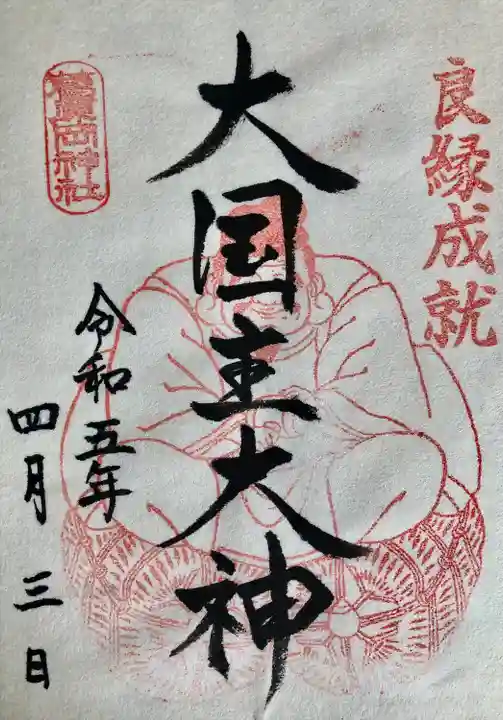 良縁成就
大国主大神
神社
令和五年
四月三日